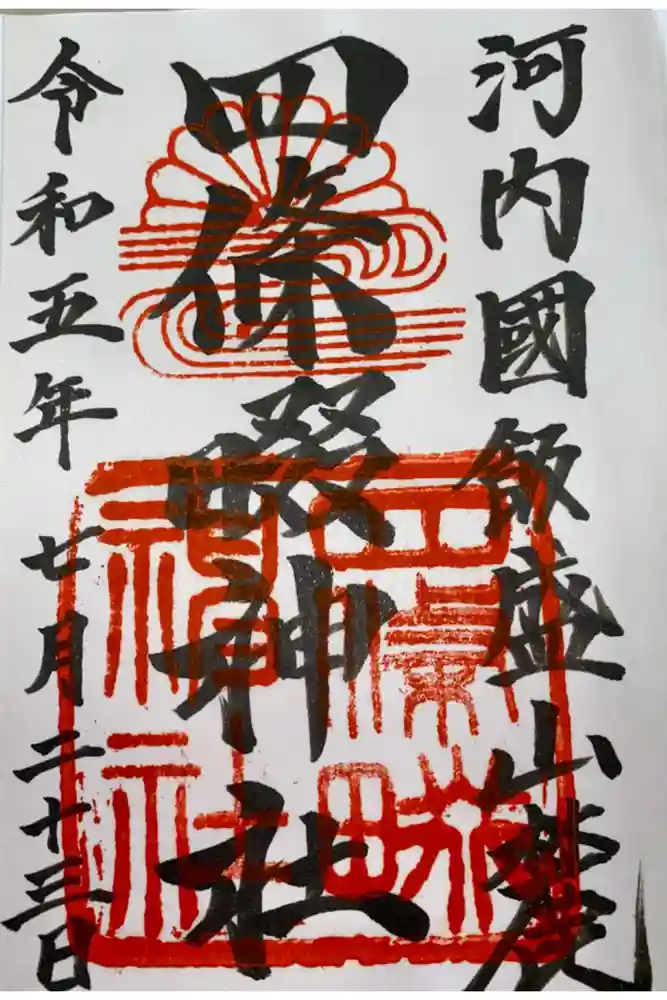 河内國飯盛山麓
四條畷神社
令和五年七月二十三日
四條畷神社